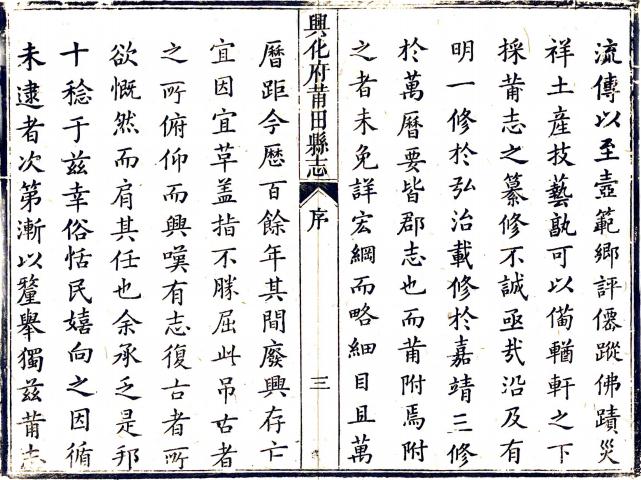 流傳以至壼範鄉評僊蹤佛蹟災
祥土產技藝孰可以備輶軒之下
採莆志之纂修不誠亟㢤沿及有
明一修於弘治載修於嘉靖三修
於萬曆要皆郡志也而莆附焉附
之者未免詳宏綱而略細目且萬
興化府莆田縣志
序
三
曆距今歷百餘年其間廢興存亡
宜因宜草蓋指不勝屈此弔古者
之所俯仰而興嘆有志復古者所
欲慨然而肩其任也余承乏是邦
十稔于茲幸俗恬民嬉向之因循
未逮者次第漸以釐舉獨茲莆志